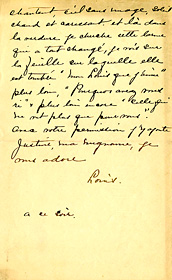 chantant ciel sans nuage, Soleil
chaud et caressant et là dans
la verdure je cherche cette dame
qui a tant changé, je vois sur
la feuille sur laquelle elle
est tombée "mon Louis que j'aime"
plus loin, "Pourquoi avez vous
ri" plus loin encore "Celle qui
ne vit plus que pour vous".
Avec votre permission j'y ajoute
Justine, ma mignonne, je
vous adore
Louis.
a ce soir.